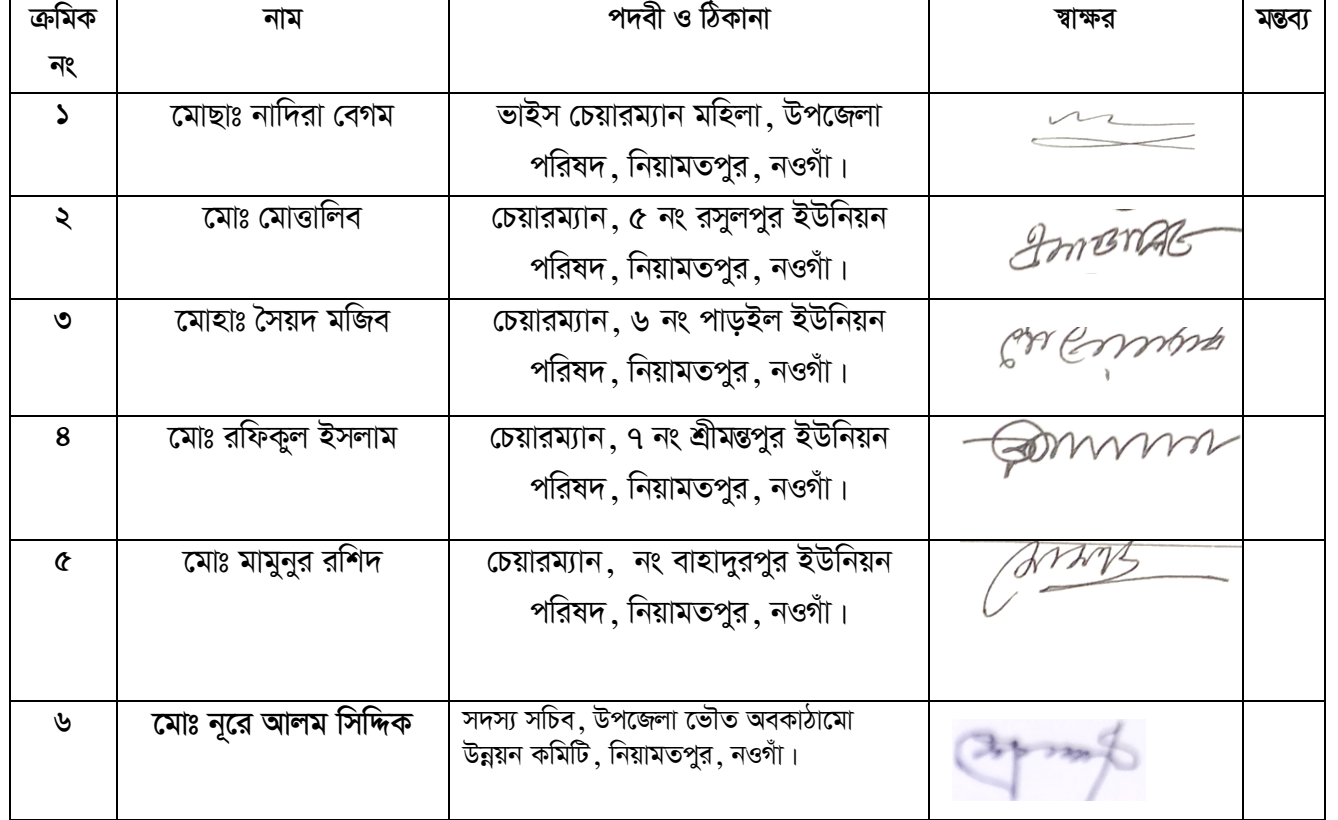 ক্রমিক নাম পদবী ও ঠিকানা স্বাক্ষর মন্তব্য
নং
১ মোছাঃ নাদিরা বেগম ভাইস চেয়ারম্যান মহিলা, উপজেলা
পরিষদ, নিয়ামতপুর, নওগাঁ।
২ মোঃ মোত্তালিব চেয়ারম্যান, ৫ নং রসুলপুর ইউনিয়ন
পরিষদ, নিয়ামতপুর, নওগাঁ।
৩ মোহাঃ সৈয়দ মজিব চেয়ারম্যান, ৬ নং পাড়ইল ইউনিয়ন
পরিষদ, নিয়ামতপুর, নওগাঁ।
৪ মোঃ রফিকুল ইসলাম চেয়ারম্যান, ৭ নং শ্রীমন্তপুর ইউনিয়ন
পরিষদ, নিয়ামতপুর, নওগাঁ।
৫ মোঃ মামুনুর রশিদ চেয়ারম্যান, নং বাহাদুরপুর ইউনিয়ন
পরিষদ, নিয়ামতপুর, নওগাঁ।
৬ মোঃ নূরে আলম সিদ্দিক সদস্য সচিব, উপজেলা ভৌত অবকাঠামো
উন্নয়ন কমিটি, নিয়ামতপুর, নওগাঁ।